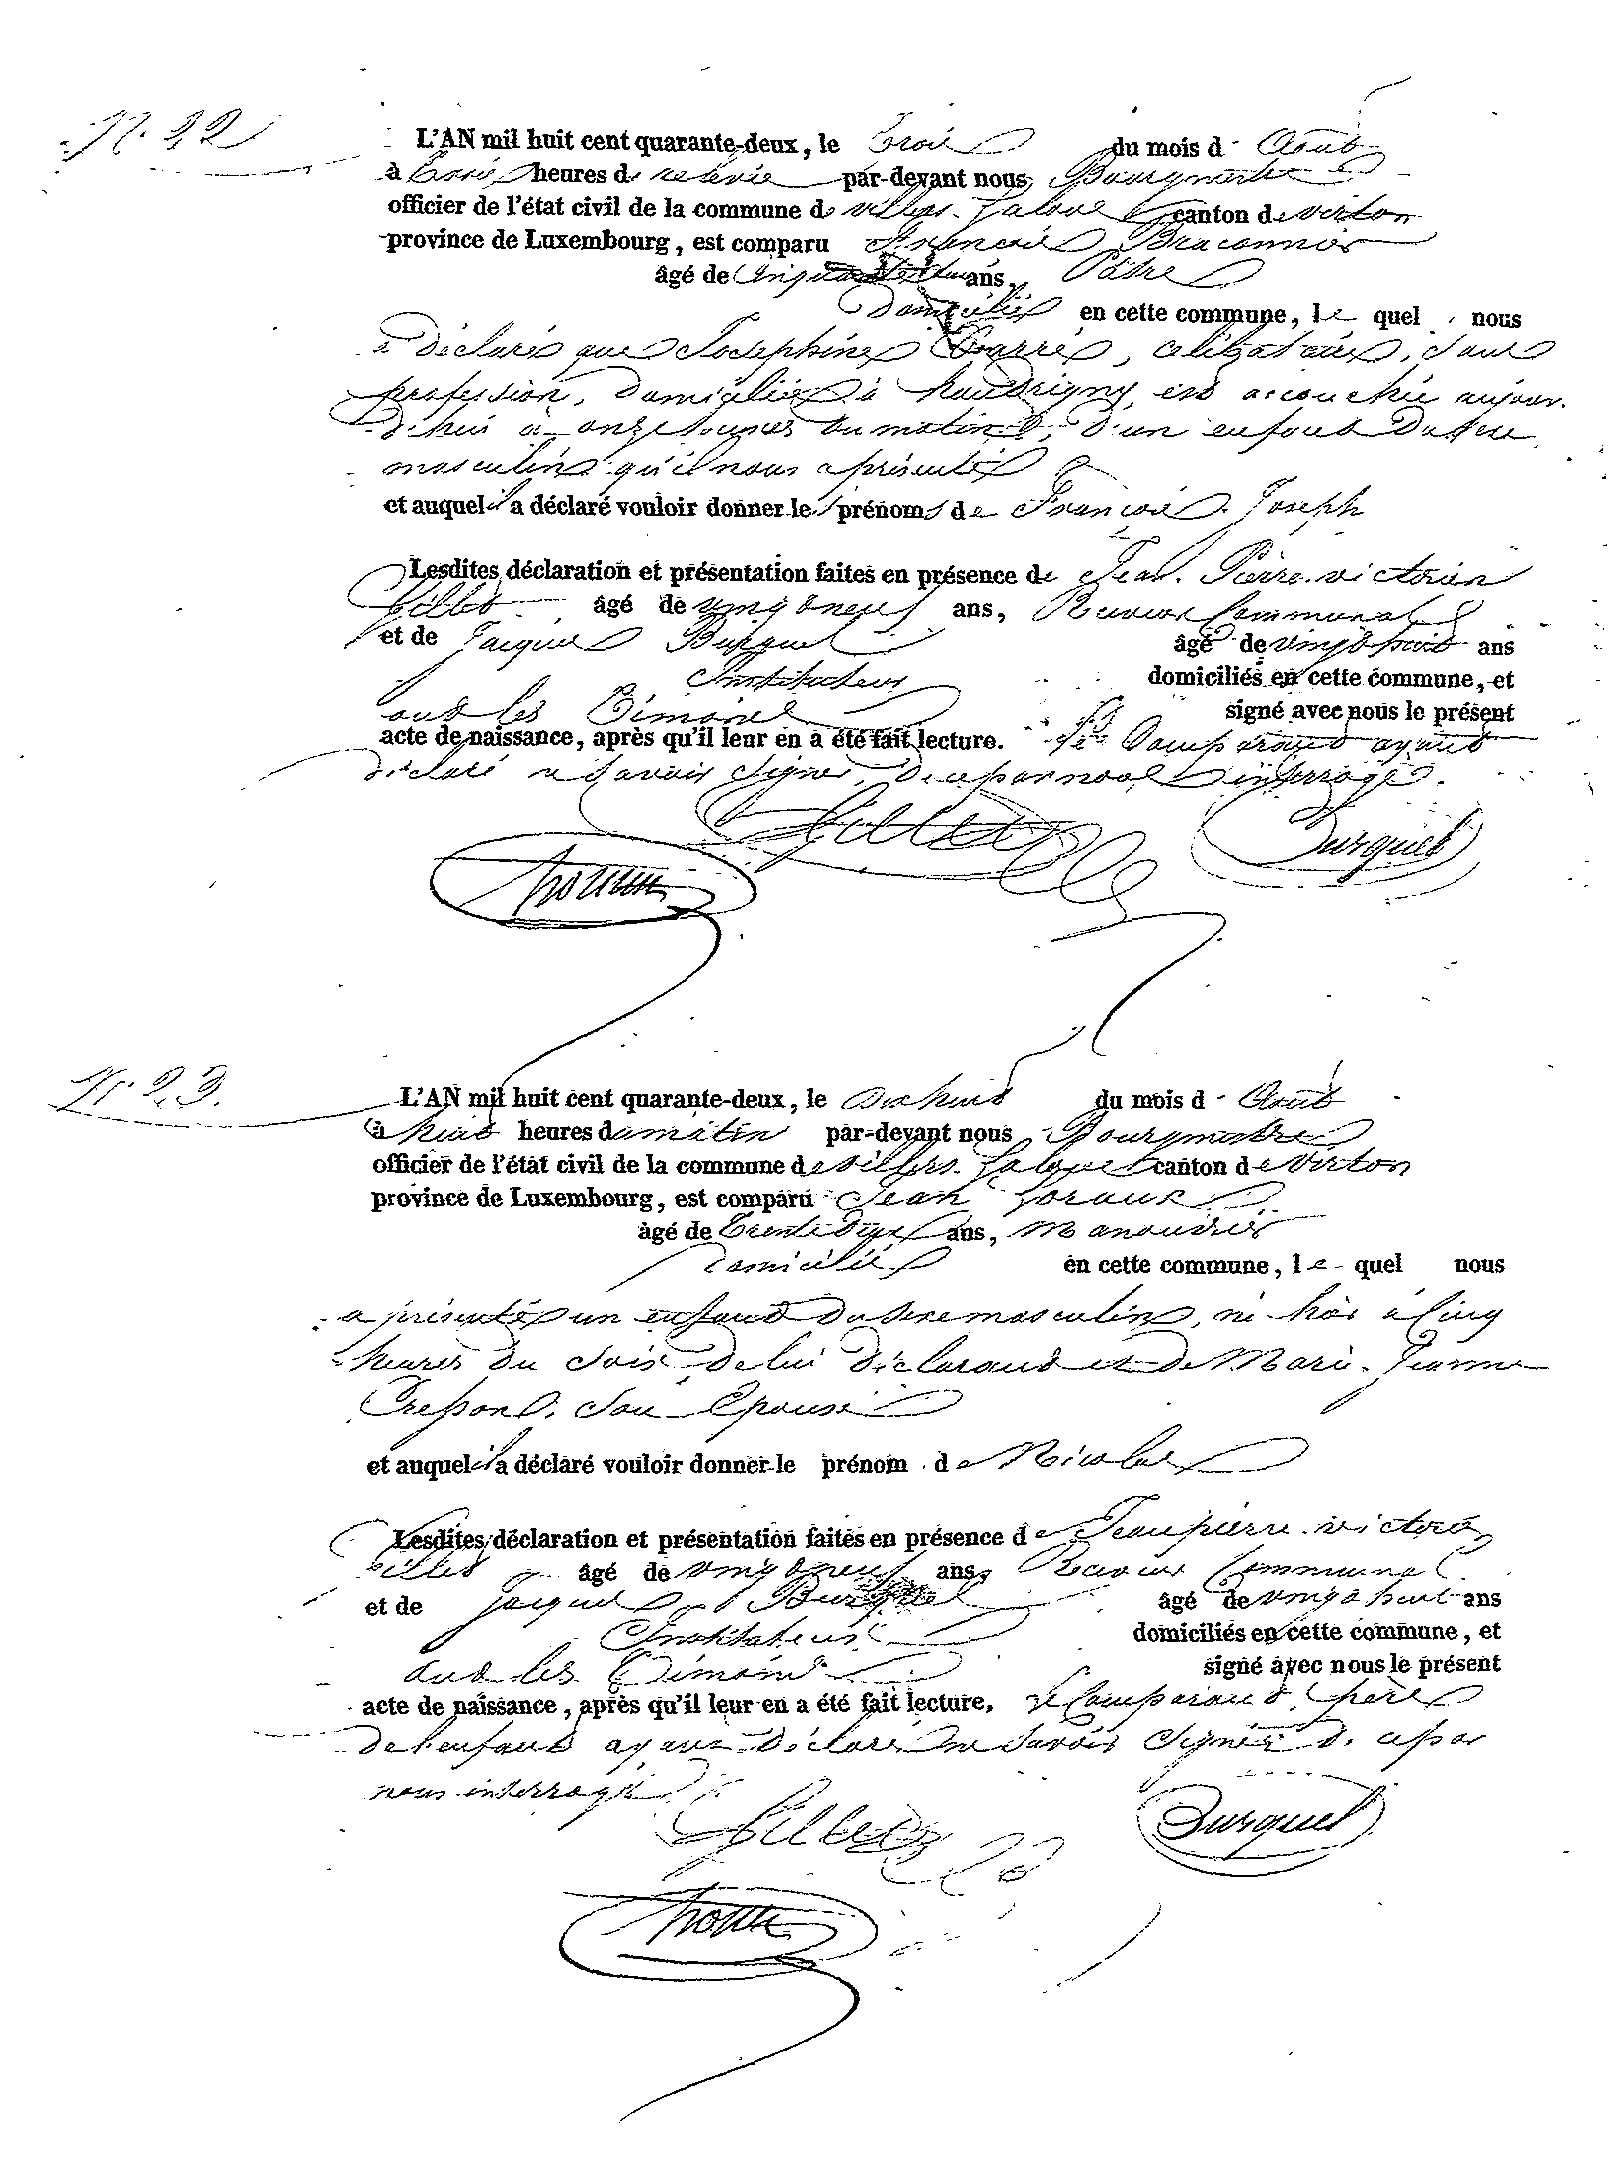 N°. 22
L'AN mil huit cent quarante-deux, le Trois du mois d' Aout
à trois heures de relevée par-devant nous, Bourgmestre
officier de l'état civil de la commune de villers-laloue canton de virton
province de Luxembourg, est comparu François Braconnier
âgé de ans, Pâtre
domicilié en cette commune, le quel nous
a déclaré que Josephine , célibataire, sans
profession, domiciliée à houdrigny, est accouchée aujour-
d'hui à onze heures du matin, d'un enfant du sexe
masculin qu'il nous a présenté
et auquel il a déclaré vouloir donner les prénoms de François Joseph
Lesdites déclaration et présentation faites en présence de Jean Pierre victorien
Gillet âgé de vingt neuf ans, Receveur Communal
et de Jacques Burquel âgé de vingt huit ans
Instituteur domiciliés en cette commune, et
ont les Témoins signé avec nous le présent
acte de naissance, après qu'il leur en a été fait lecture. le Comparant ayant
déclaré ne savoir signer, de ce par nous interrogé.
Gillet Burquel
N° 23.
L'AN mil huit cent quarante-deux, le dix huit du mois d' Aout
à huit heures du matin par-devant nous Bourgmestre
officier de l'état civil de la commune de villers-laloue canton de virton
province de Luxembourg, est comparu Jean Goraux
âgé de Trente deux ans, manouvrier
Domicilié en cette commune, le quel nous
a présenté un enfant du sexe masculin, né hier à Cinq
heures du soir, de lui déclarant et de Marie-Jeanne
, son Epouse
et auquel il a déclaré vouloir donner le prénom de Nicolas
Lesdites déclaration et présentation faites en présence de Jean pierre victorien
Gillet âgé de vingt neuf ans, Receveur Communal
et de Jacques Burquel âgé de vingt huit ans
Instituteur domiciliés en cette commune, et
ont les Témoins signé avec nous le présent
acte de naissance, après qu'il leur en a été fait lecture, le Comparant père
de l'enfant ayant déclaré ne savoir signer de ce par
nous interrogé
Gillet Burquel